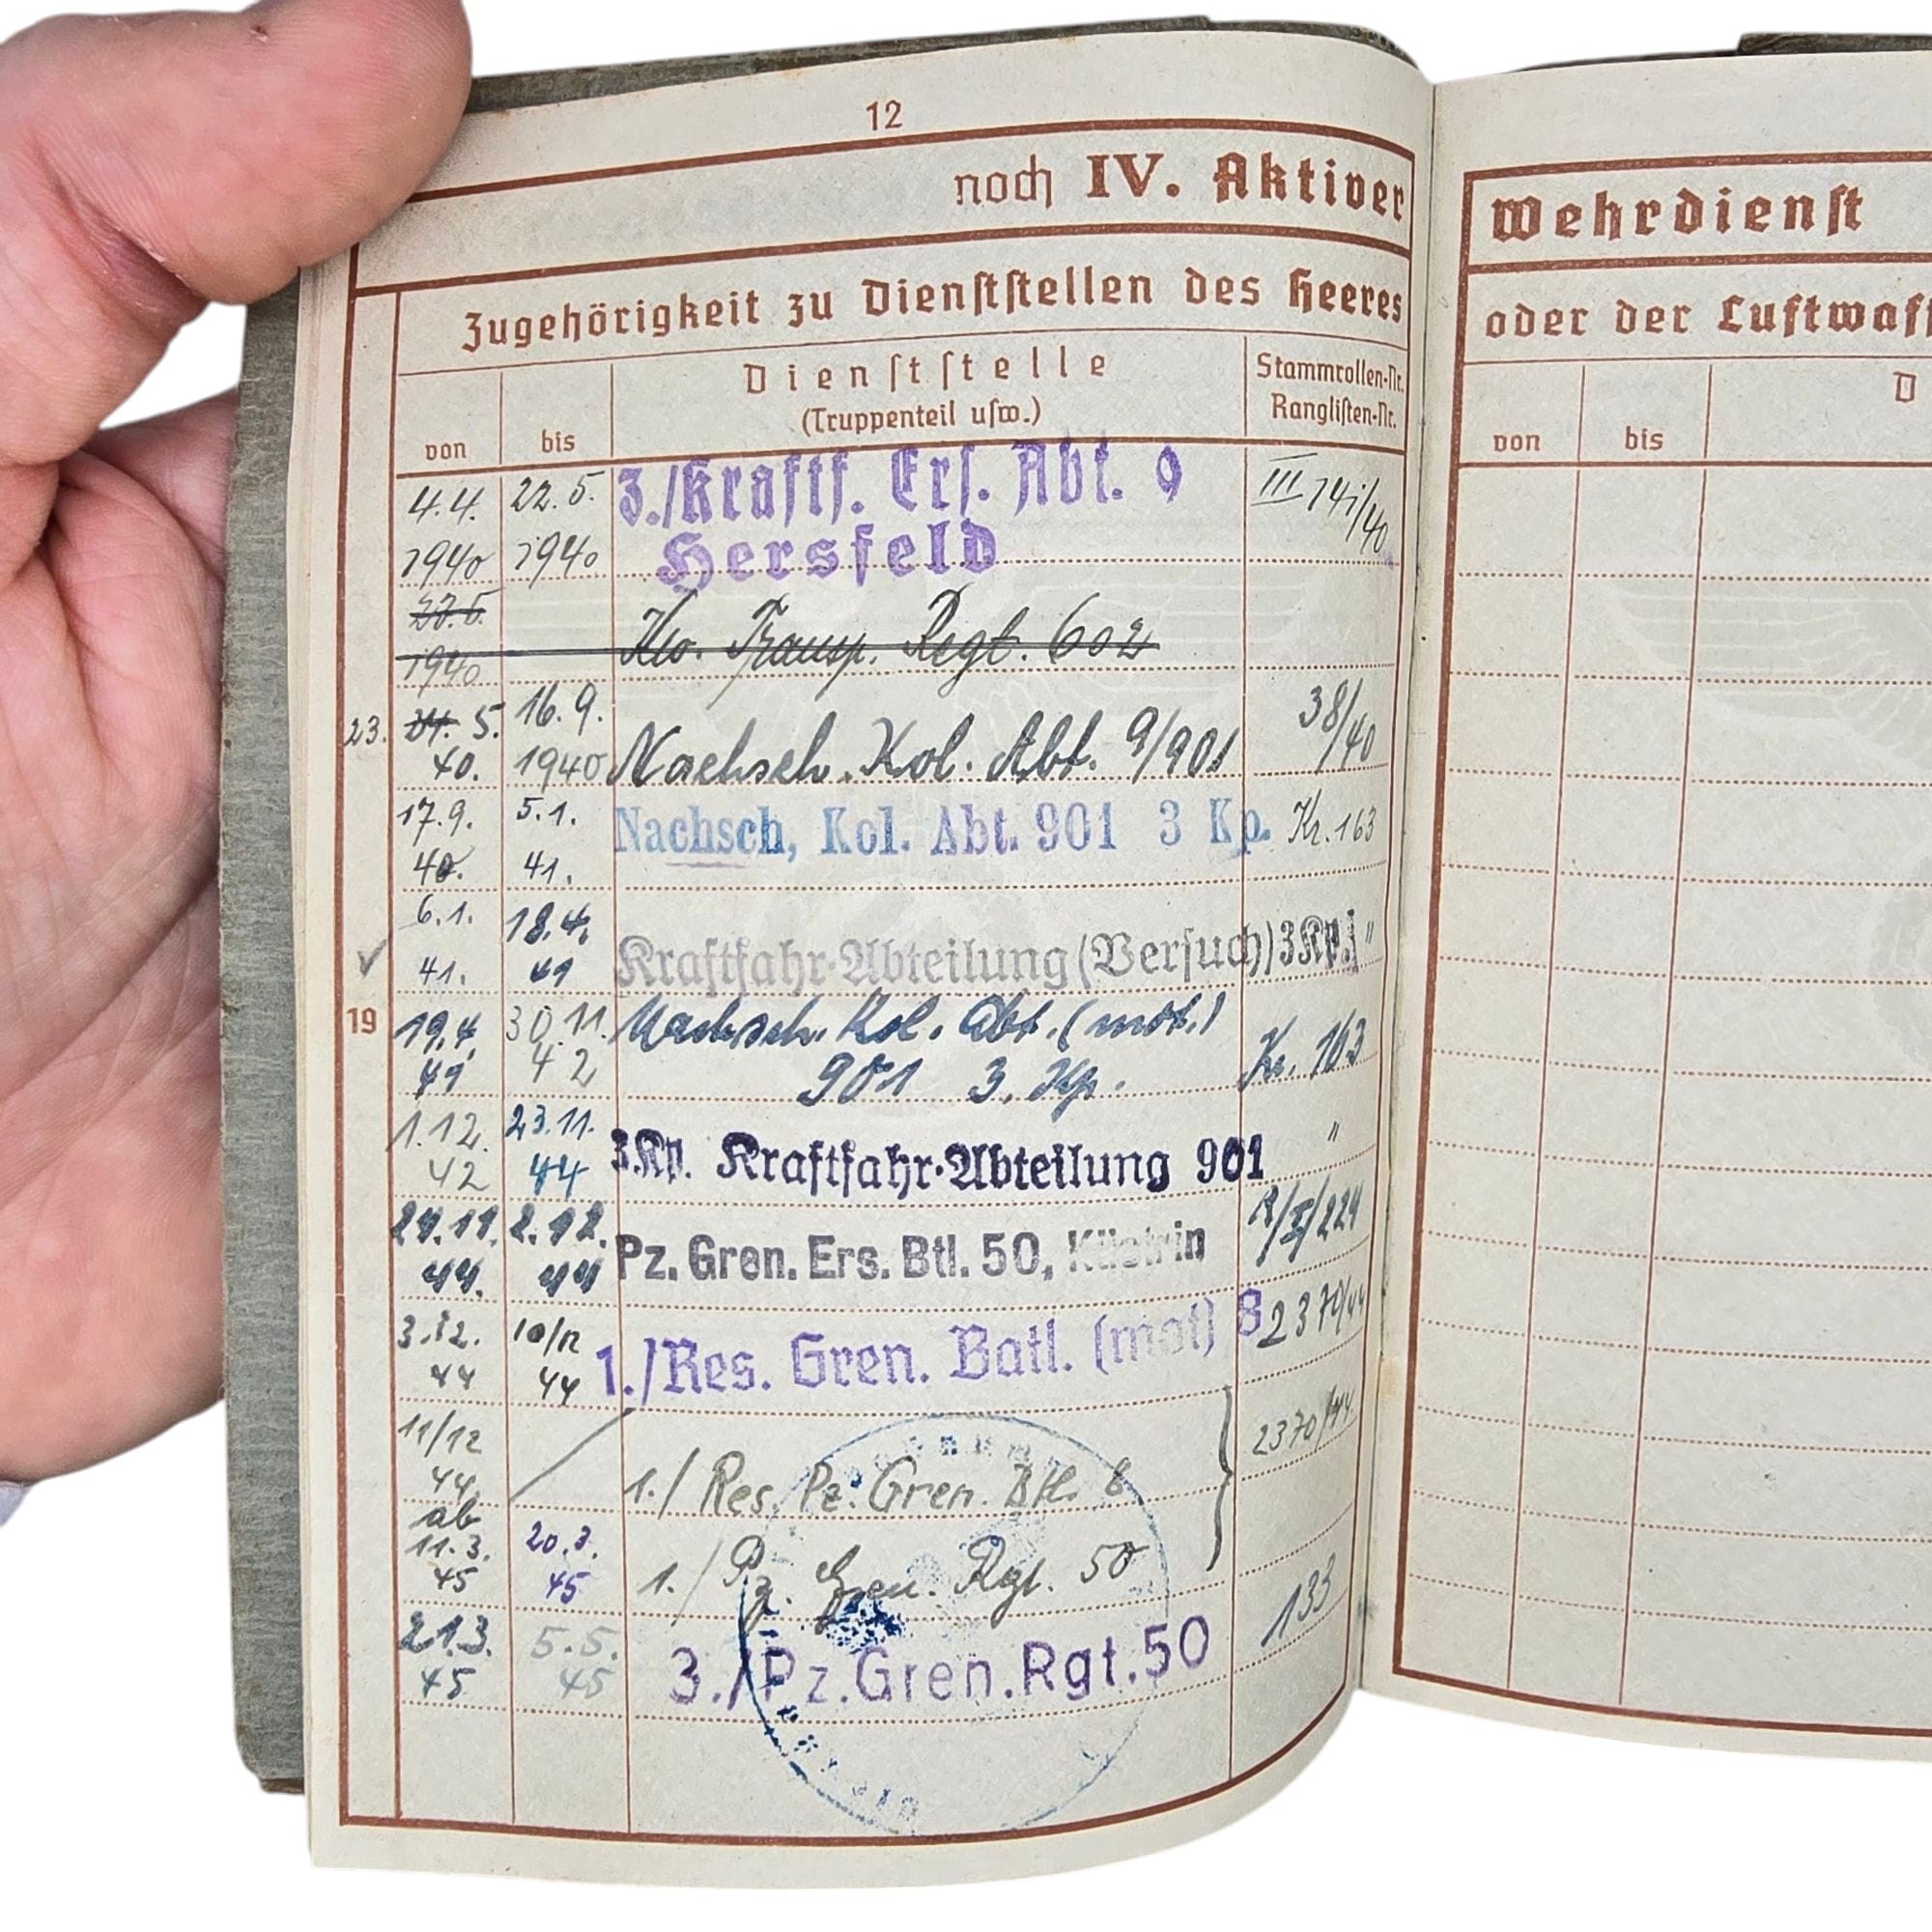 12
noch IV. Aktiver
Zugehörigkeit zu Dienststellen des Heeres
von bis Dienststelle
(Truppenteil usw.) Stammrollen-Nr.
Ranglisten-Nr.
4.4. 22.5. 3./Kraftf. Ers. Abt. 9 III 141/40
1940 1940 Hersfeld
22.5.
1940 Kw. Transp. Regt. 602
23. 24. 5. 16.9. 38/40
40. 1940 Nachsch. Kol. Abt. 9/901
17.9. 5.1. Nachsch, Kol. Abt. 901 3 Kp. Kr. 163
40. 41.
6.1. 18.4. Kraftfahr-Abteilung (Versuch) 3 Kp. "
41. 41
19 19.4. 30.11. Nachsch. Kol. Abt. (mot.)
41 42 901 3. Kp. Kr. 163
1.12. 23.11. 3.Kp. Kraftfahr-Abteilung 901 "
42 44
24.11. 2.12. Pz. Gren. Ers. Btl. 50, Küstrin
44. 44
3.12. 10/12 1./Res. Gren. Batl. (mot) 8 2370/44
44 44
11/12 1./ Res. Pz. Gren. Btl. 8 2370/44
44
ab
11.3. 20.3. 1./ Pz. Gren. Rgt. 50
45 45
21.3. 5.5. 3./Pz.Gren.Rgt.50 133
45 45
Wehrdienst
oder der Luftwaf
von bis D